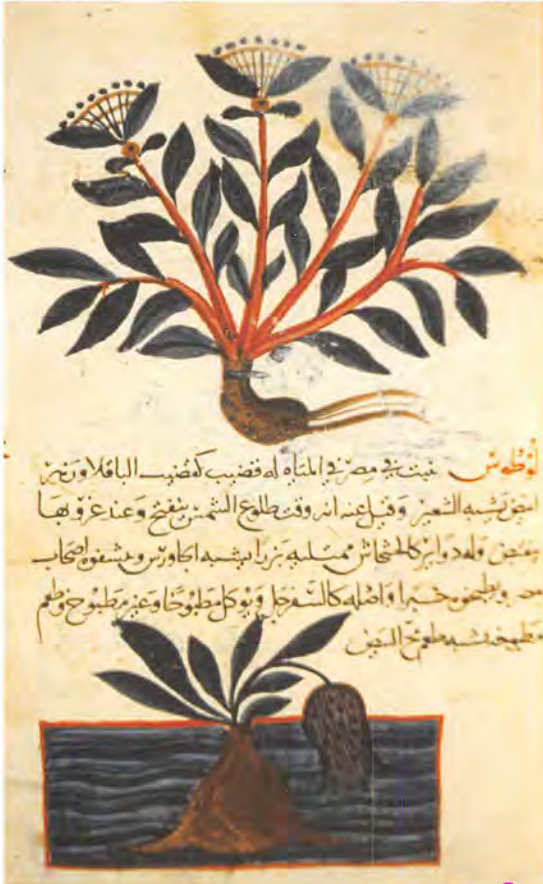 لوطوس ينبت في مصر في المياه له قضيب كقضيب الباقلا وزهر
ابيض يشبه الشعير وقيل عنه انه وقت طلوع الشمس ينفتح وعند غروبها
ينقبض وله دواير كالخشخاش ممتليه بزرا يشبه الجاورس ويشفوه اصحاب
مصر ويطبخوه خبزا واصله كالسفرجل ويوكل مطبوخا وغير مطبوخ وطعم
مطبوخه يشبه طعم مح البيض